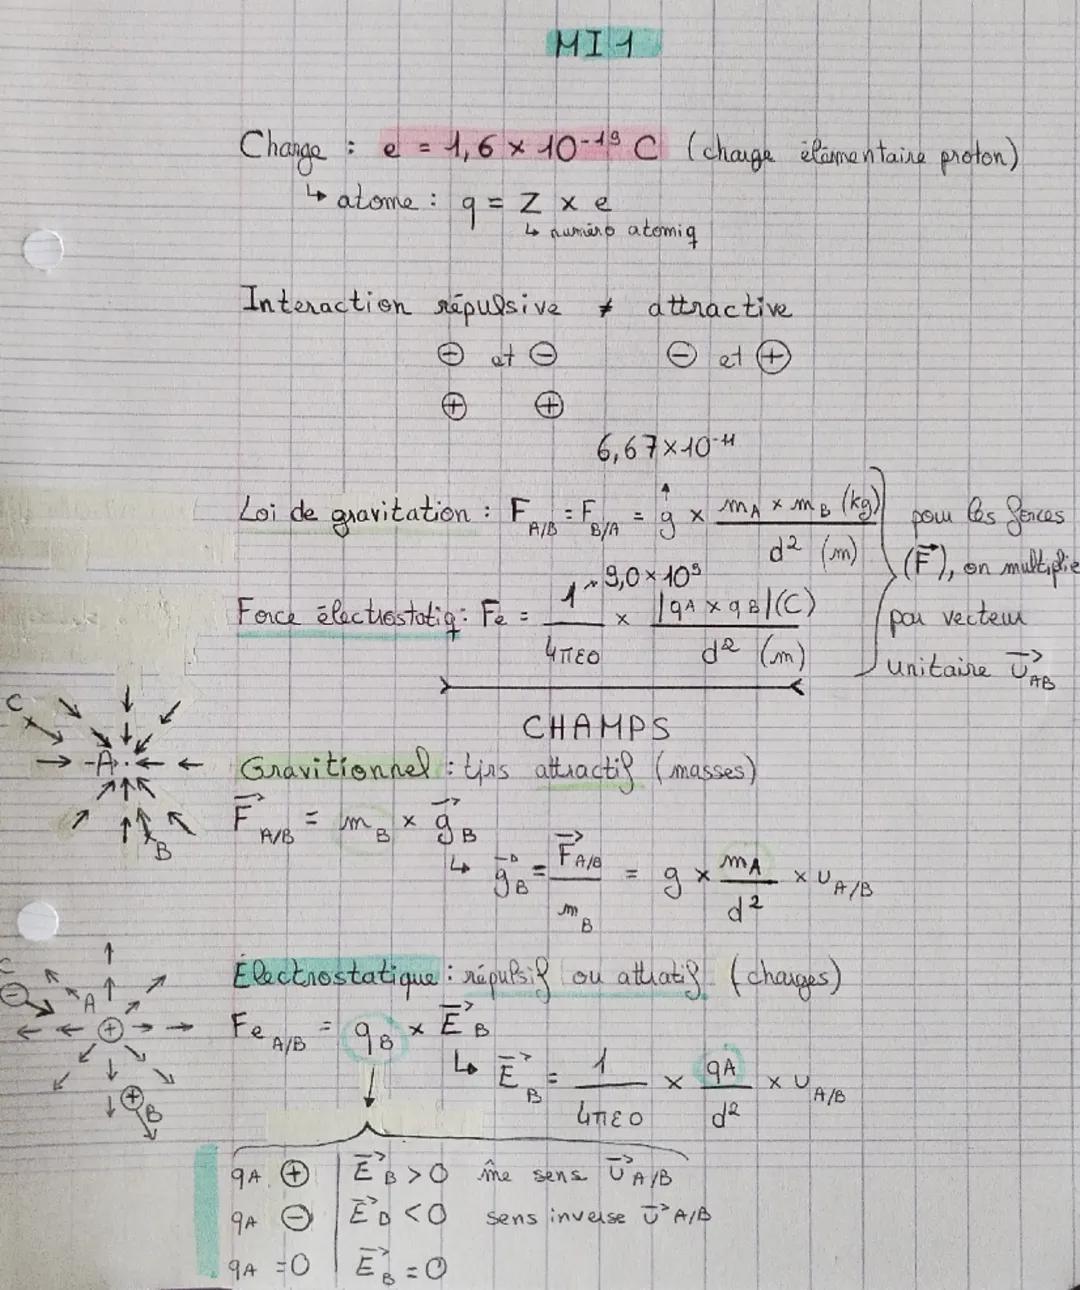 MI 1
Charge : e = 1,6 × 10⁻¹⁹ C (charge élémentaire proton)
↳ atome : q = Z × e
↳ numéro atomiq
Interaction répulsive ≠ attractive
⊕ et ⊖ ⊖ et ⊕
⊕ ⊕
6,67×10⁻¹¹
Loi de gravitation : F A/B = F B/A = g × mA × mB (kg) / d² (m)
Force électrostatiq : Fe = 1 / 4πε0 × |qA × qB| (C) / d² (m)
9,0×10⁹
pour les forces
(F⃗), on multiplie
par vecteur
unitaire U⃗ AB
CHAMPS
Gravitionnel : tjrs attractif (masses)
F⃗ A/B = mB × g⃗ B
↳ g⃗ B = F⃗ A/B / mB = g × mA / d² × U A/B
C
A
B
Électrostatique : répulsif ou attratif (charges)
Fe A/B = qB × E⃗ B
↳ E⃗ B = 1 / 4πε0 × qA / d² × U A/B
C
⊖
A
⊕
⊕ B
qA ⊕ | E⃗ B > 0 m̂e sens U⃗ A/B
qA ⊖ | E⃗ B < 0 sens inverse U⃗ A/B
qA = 0 | E⃗ B = 0